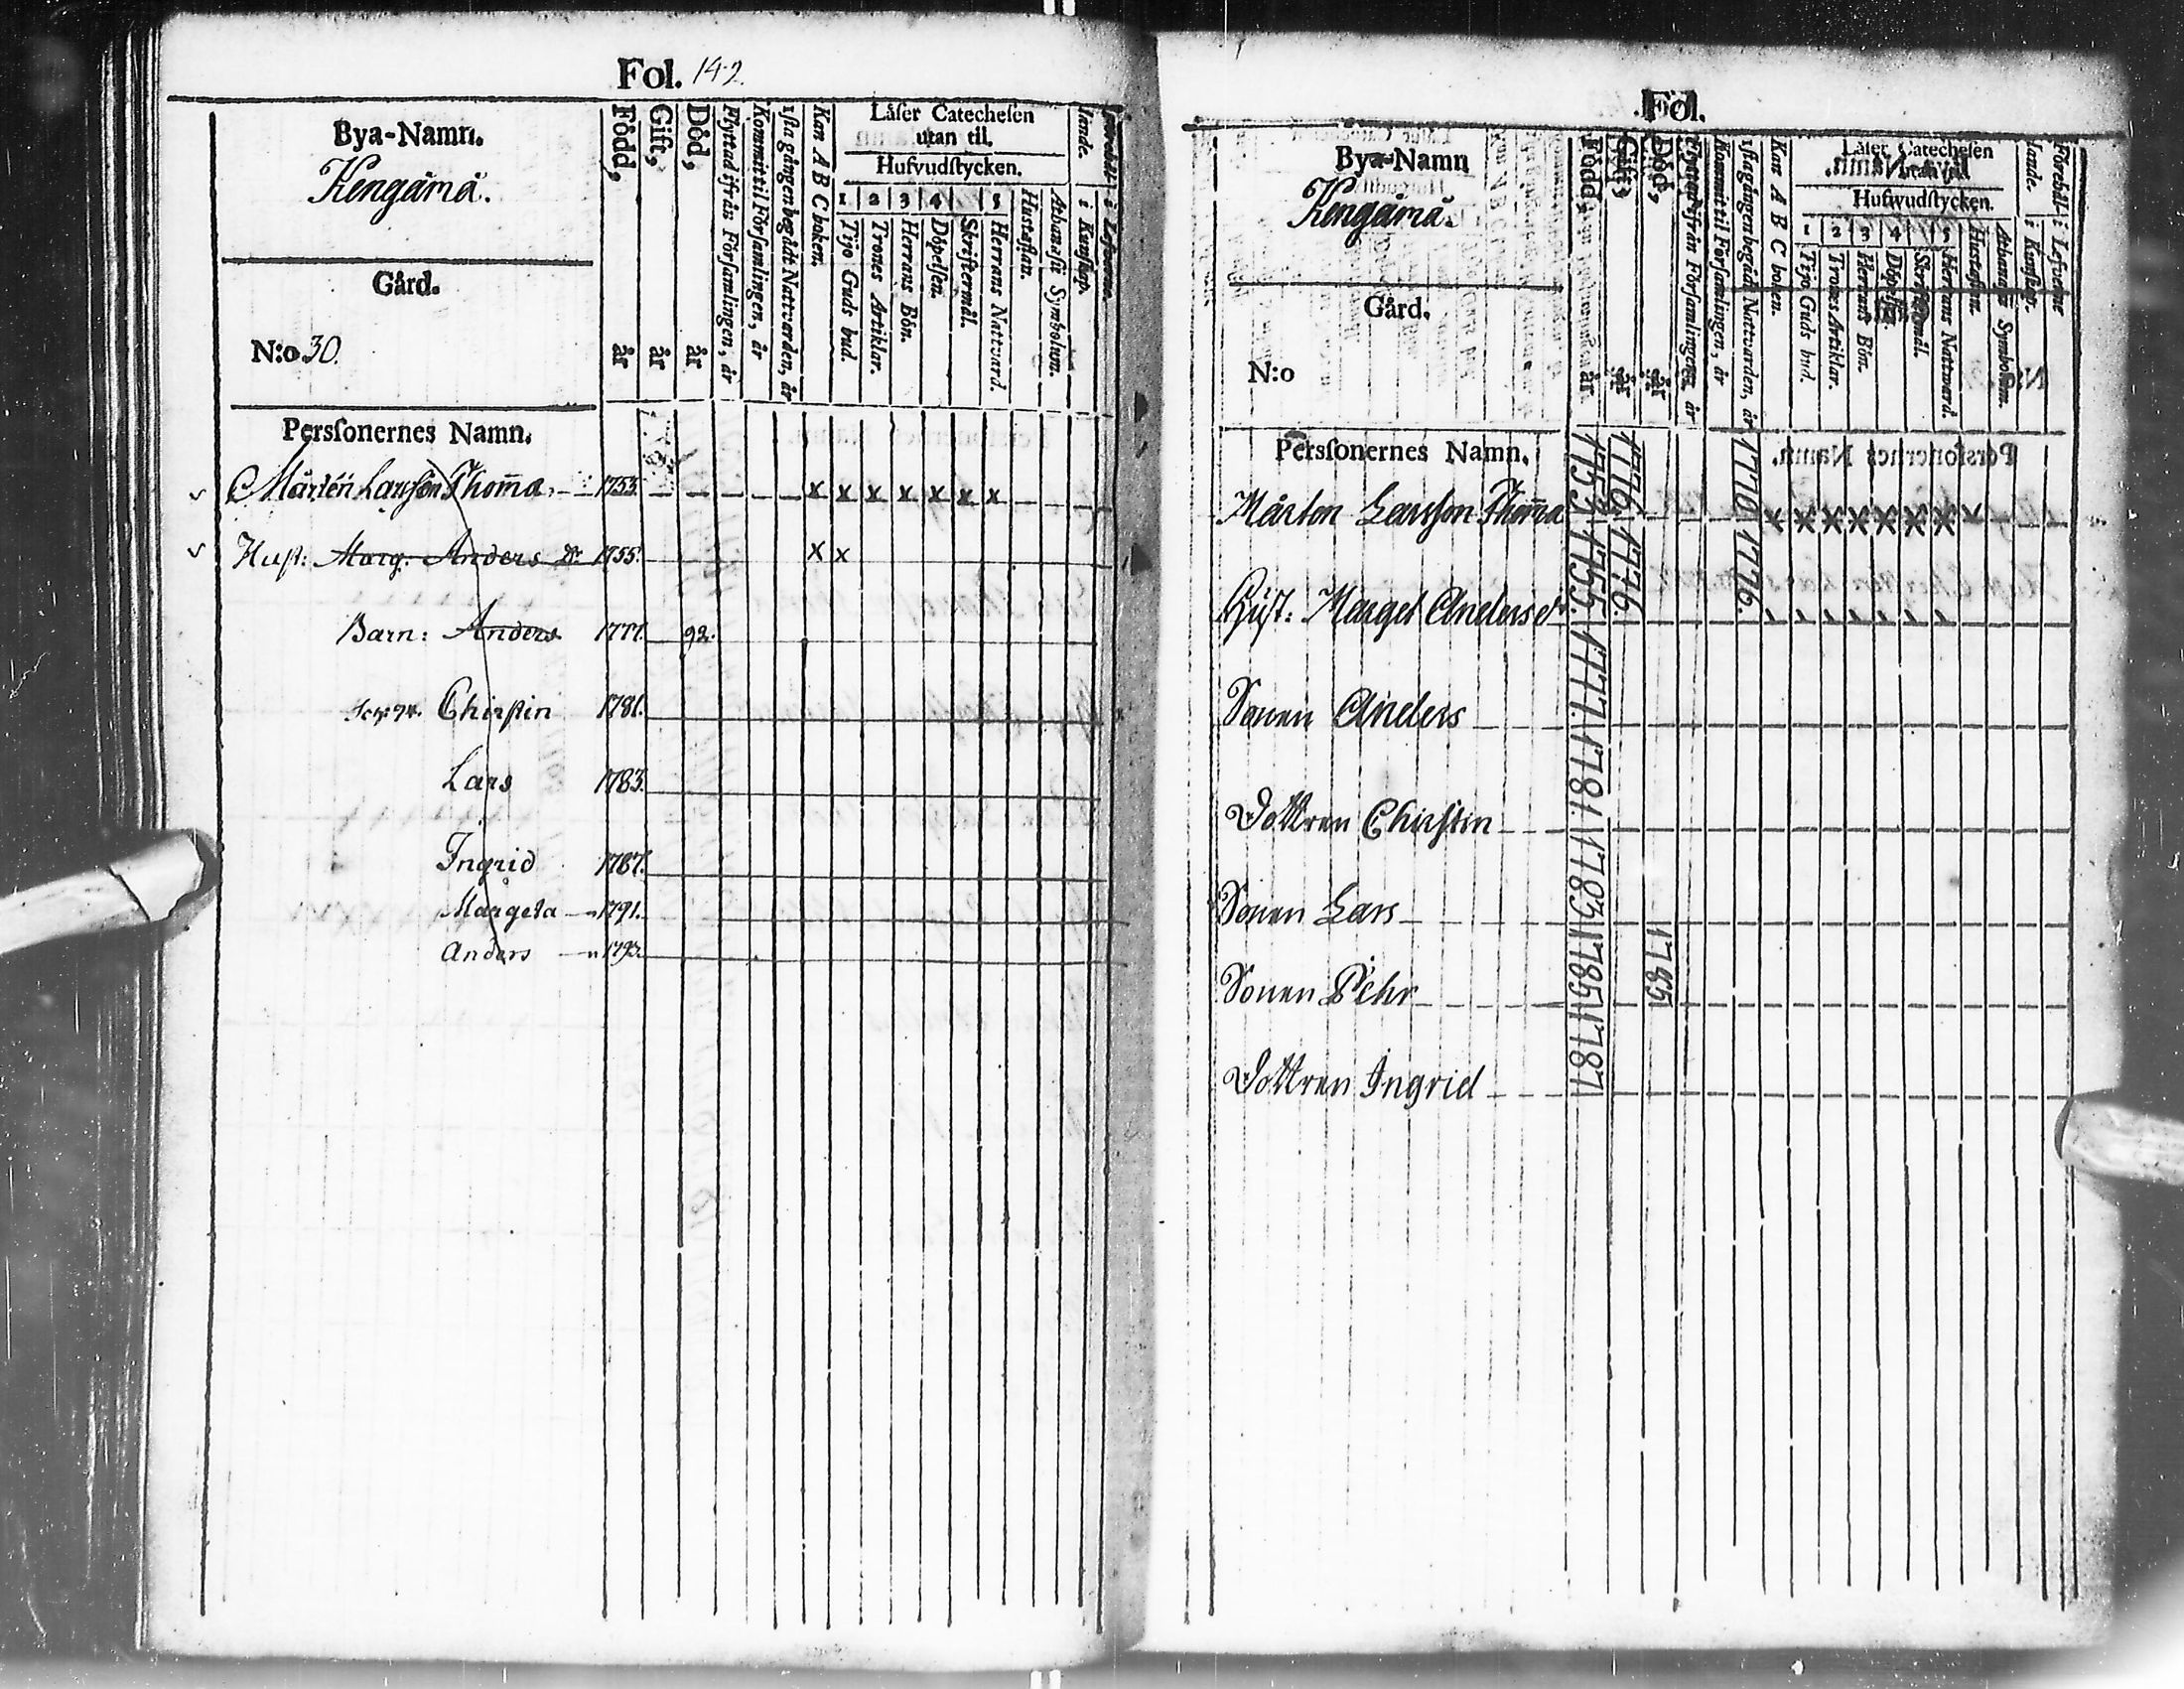 Fol. 142.
Bya-Namn.
Kengämä.
Gård.
N:o 30.
Född, år
Gift, år
Död, år
Flyttad ifrån Församlingen, år
Kommit til Församlingen, år
1sta gången begådt Nattvarden, år
Kan A B C boken.
Läser Catechesen
utan til.
Hufvudstycken.
1 2 3 4 5
Tijo Guds bud.
Trones Artiklar.
Herrans Bön.
Döpelsen.
Skriftermål.
Herrans Nattvard.
Hustaflan.
Athanasii Symbolum.
Personernes Namn.
Mårten Larsson Thoma 1753. x x x x x x x
Hust: Marg. Anders Dr 1755. x x
Barn: Anders 1777. 92.
Chirstin 1781.
Lars 1783.
Ingrid 1787.
Margeta 1791.
Anders 1793.
Fol.
Bya-Namn
Kengämä.
Gård.
N:o
Född, år
Gift, år
Död, år
Flyttad ifrån Församlingen, år
Kommit til Församlingen, år
1sta gången begådt Nattvarden, år
Kan A B C boken.
Läser Catechesen
utan til.
Hufwudstycken.
1 2 3 4 5
Tijo Guds bud.
Trones Artiklar.
Herrans Bön.
Döpelsen.
Skriftermål.
Herrans Nattvard.
Hustaflan.
Athanasii Symbolum.
Förebåll: i Lefverne
lande. i Kunskap.
Personernes Namn.
Mårten Larsson Thoma 1753 1776 1770 x x x x x x x x
Hust: Marget Andersdr 1755. 1776. 1776.
Sonen Anders 1777.
Dottren Chirstin 1781.
Sonen Lars 1783
Sonen Pehr 1785 1785
Dottren Ingrid 1787